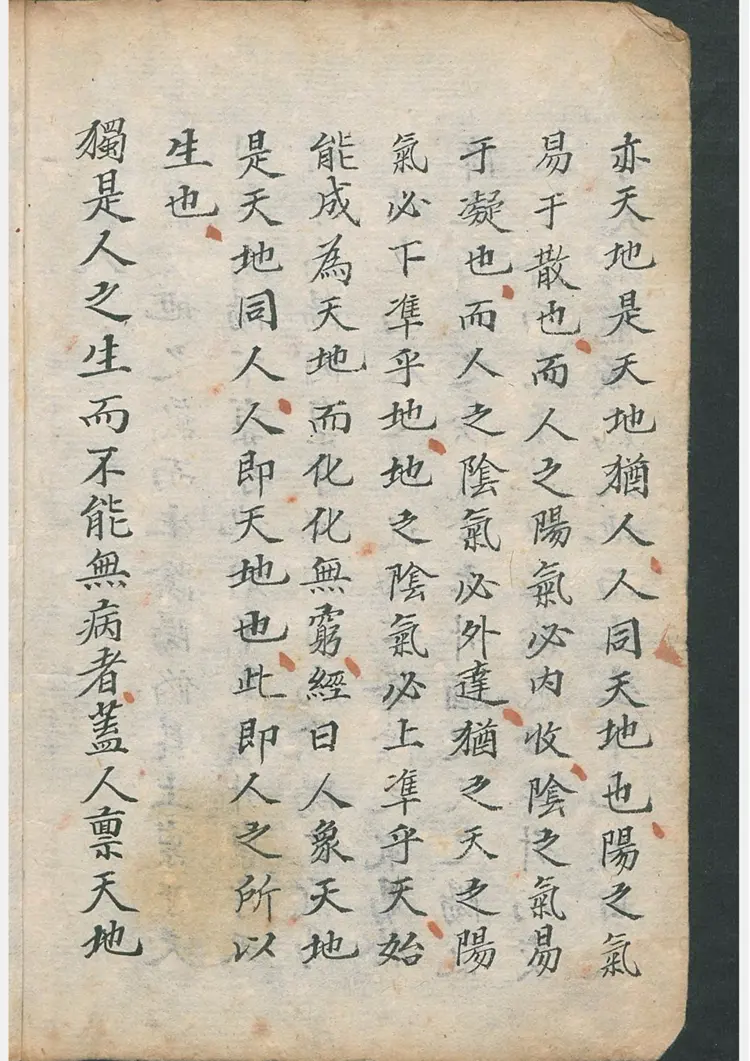 亦天地是天地猶人人同天地也陽之氣
易于散也而人之陽氣必内收陰之氣易
于凝也而人之陰氣必外達猶之天之陽
氣必下準乎地地之陰氣必上準乎天始
能成為天地而化化無窮經曰人象天地
是天地同人人即天地也此即人之所以
生也
獨是人之生而不能無病者葢人禀天地